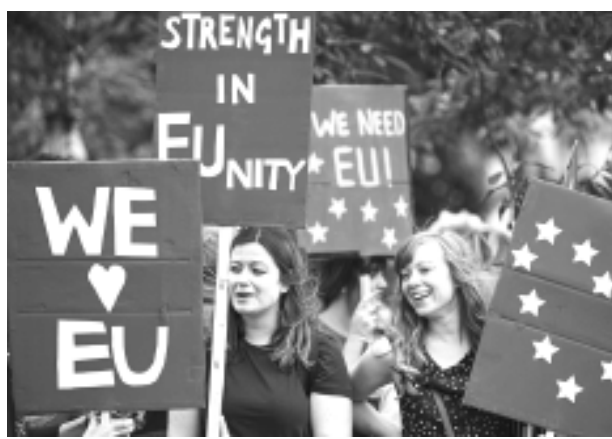 STRENGTH
IN
EUNITY
WE NEED
EU!
WE
♥
EU